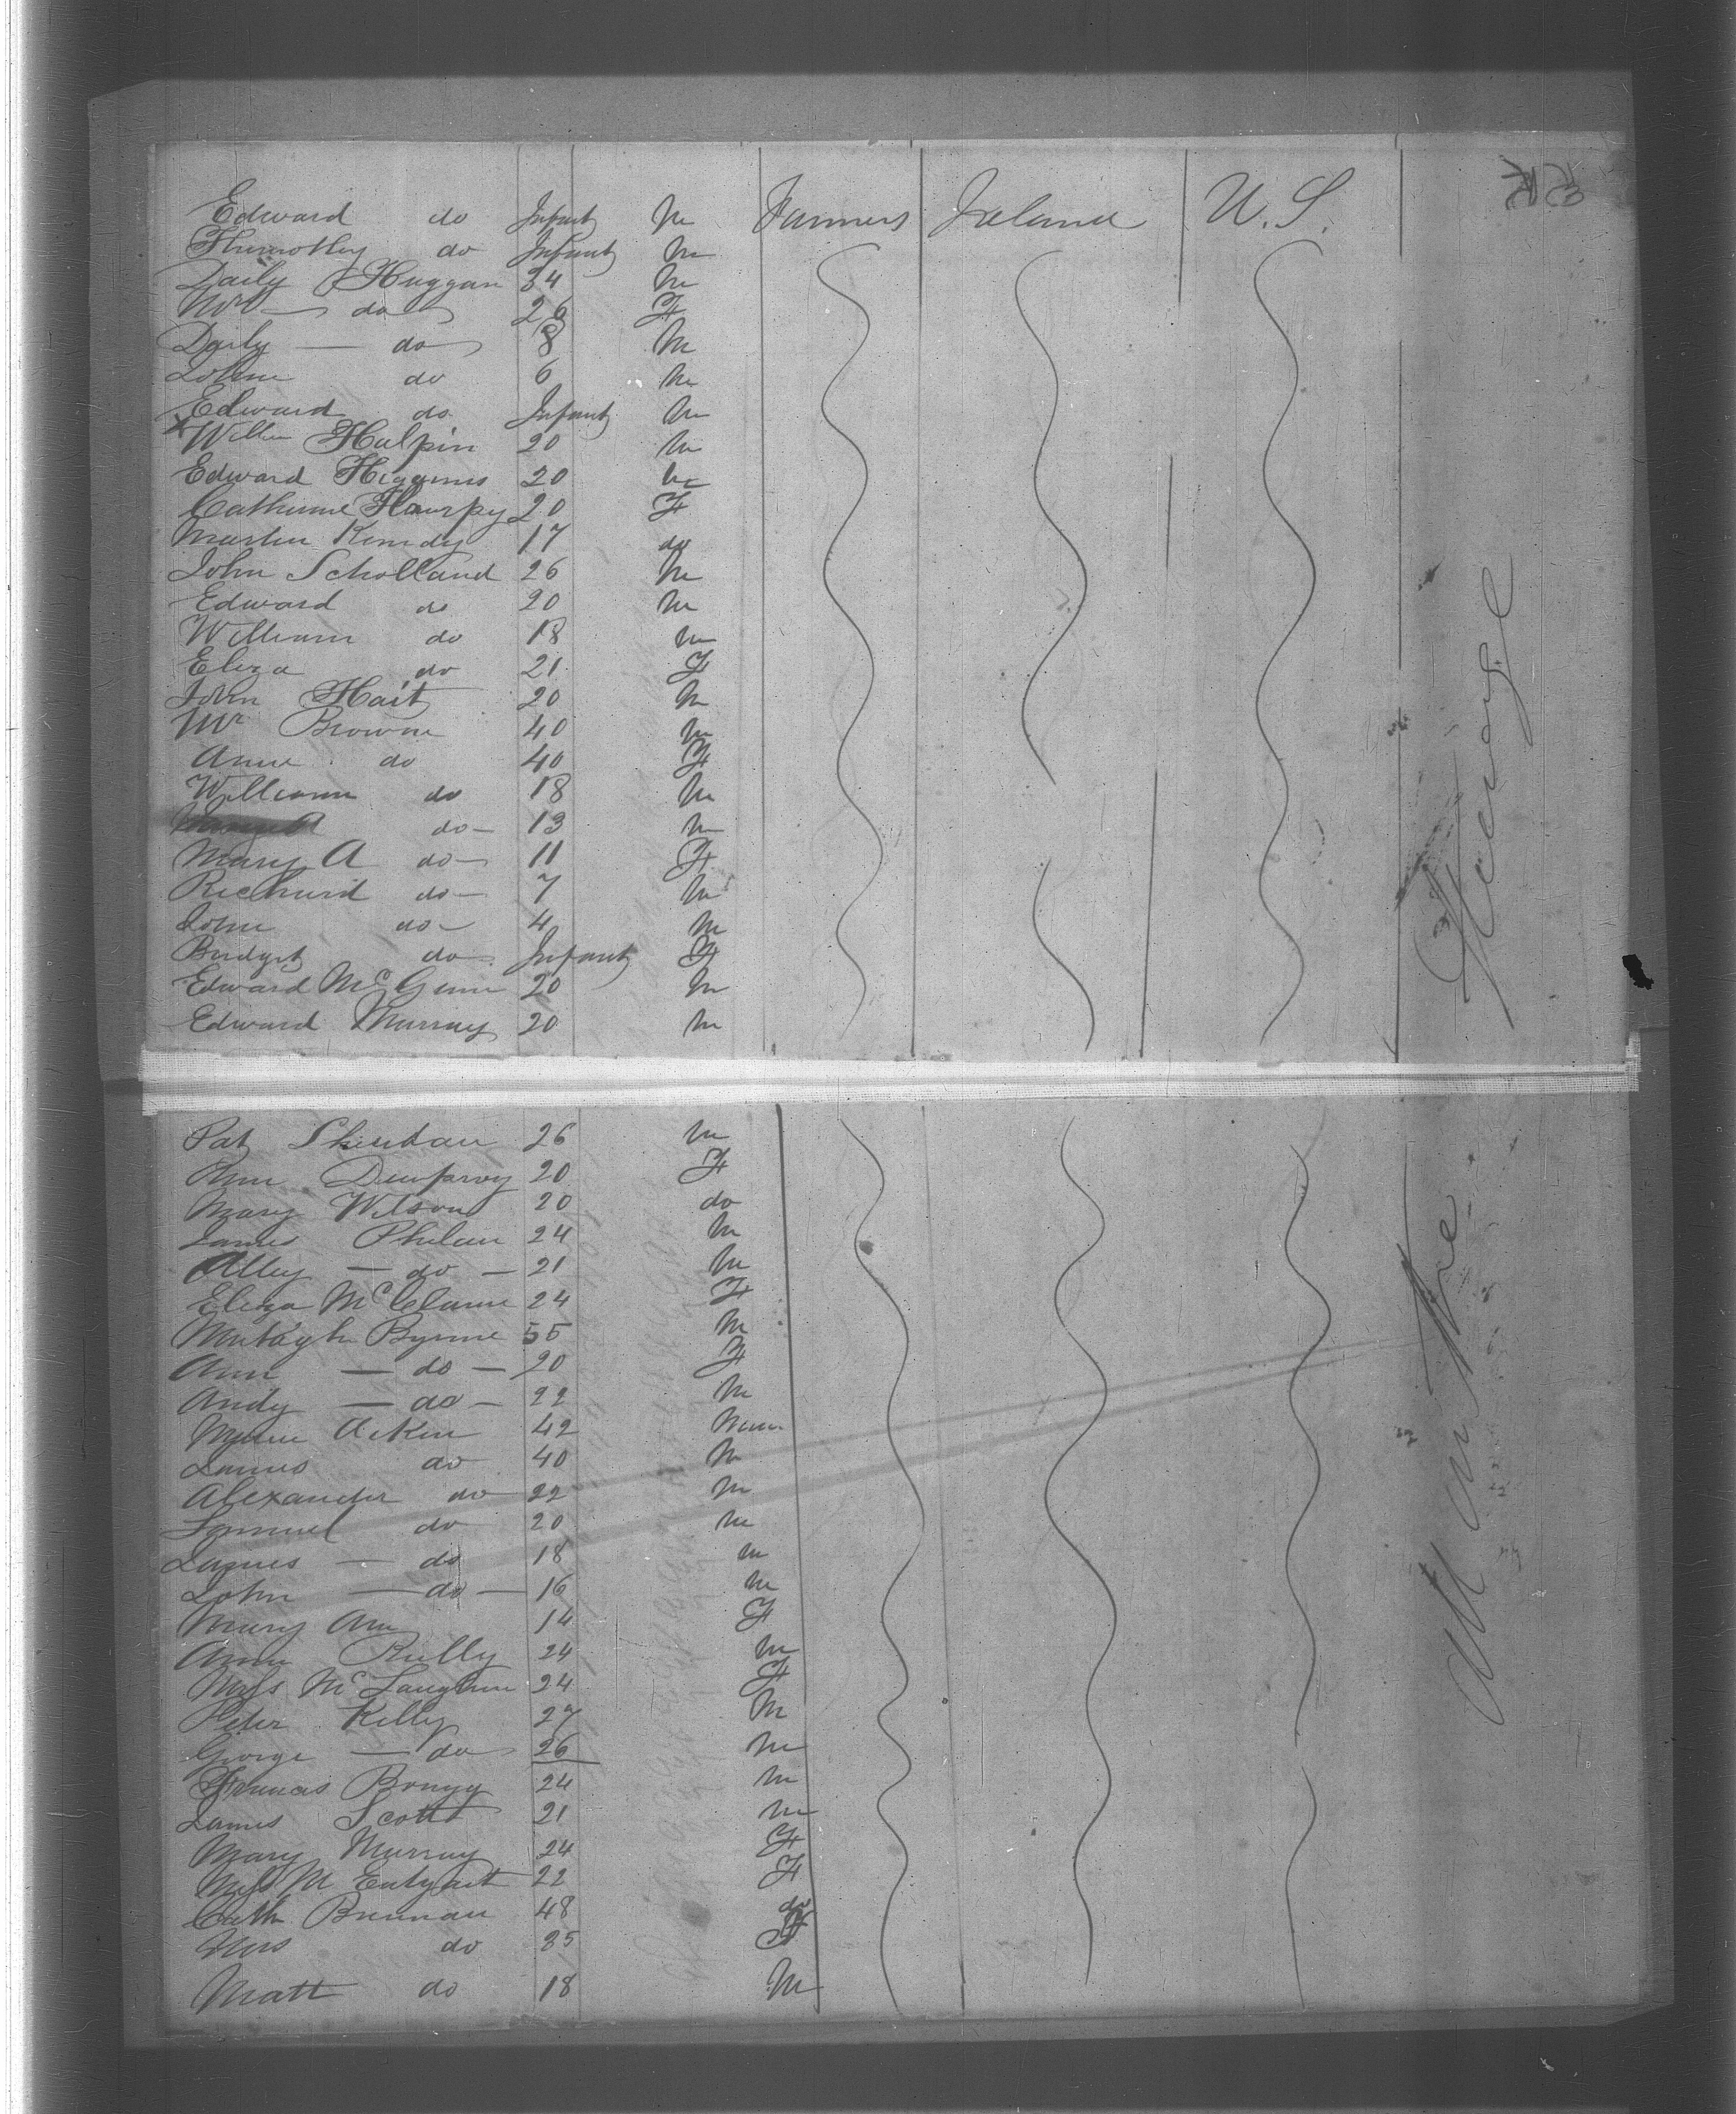 Edward do Infant m Farmers Ireland U.S.
Thimothy do Infant m
Daily Huggan 34 m
Mrs do 26 F
Daily — do 8 m
John do 6 m
Edward do Infant m
x Willm Halpin 20 m
Edward Higgins 20 m
Catherine 20 F
Martin Kenedy 17 do
John Scholland 26 m
Edward do 20 m
William do 18 m
Eliza do 21 F
John Hait 20 m
Mr Browne 40 m
Anne do 40 F
William do 18 m
do — 13 m
Mary A do — 11 F
Richard do — 7 m
John do — 4 m
Bridget do Infant F
Edward McGinn 20 m
Edward Murray 20 m
Pat Sheridan 26 m
Ann 20 F
Mary Wilson 20 do
James Phelan 24 m
Alley — do — 21 m
Eliza McClanne 24 F
Murtaugh Byrne 55 m
Ann — do — 20 F
Andy — do — 22 m
Aiken 42
James do 40 m
Alexander do 22 m
Samuel do 20 m
James — do 18 m
John — do — 16 m
Mary Ann 14 F
Ann Rielly 24 m
Miss McLaughlin 24 F
Peter Kelly 27 m
George — do 26 m
Francis 24 m
James Scott 21 m
Mary Murray 24 F
Miss M 22 F
Cath Brennan 48 do
Mrs do 35 F
Matt do 18 m
All in the Steerage